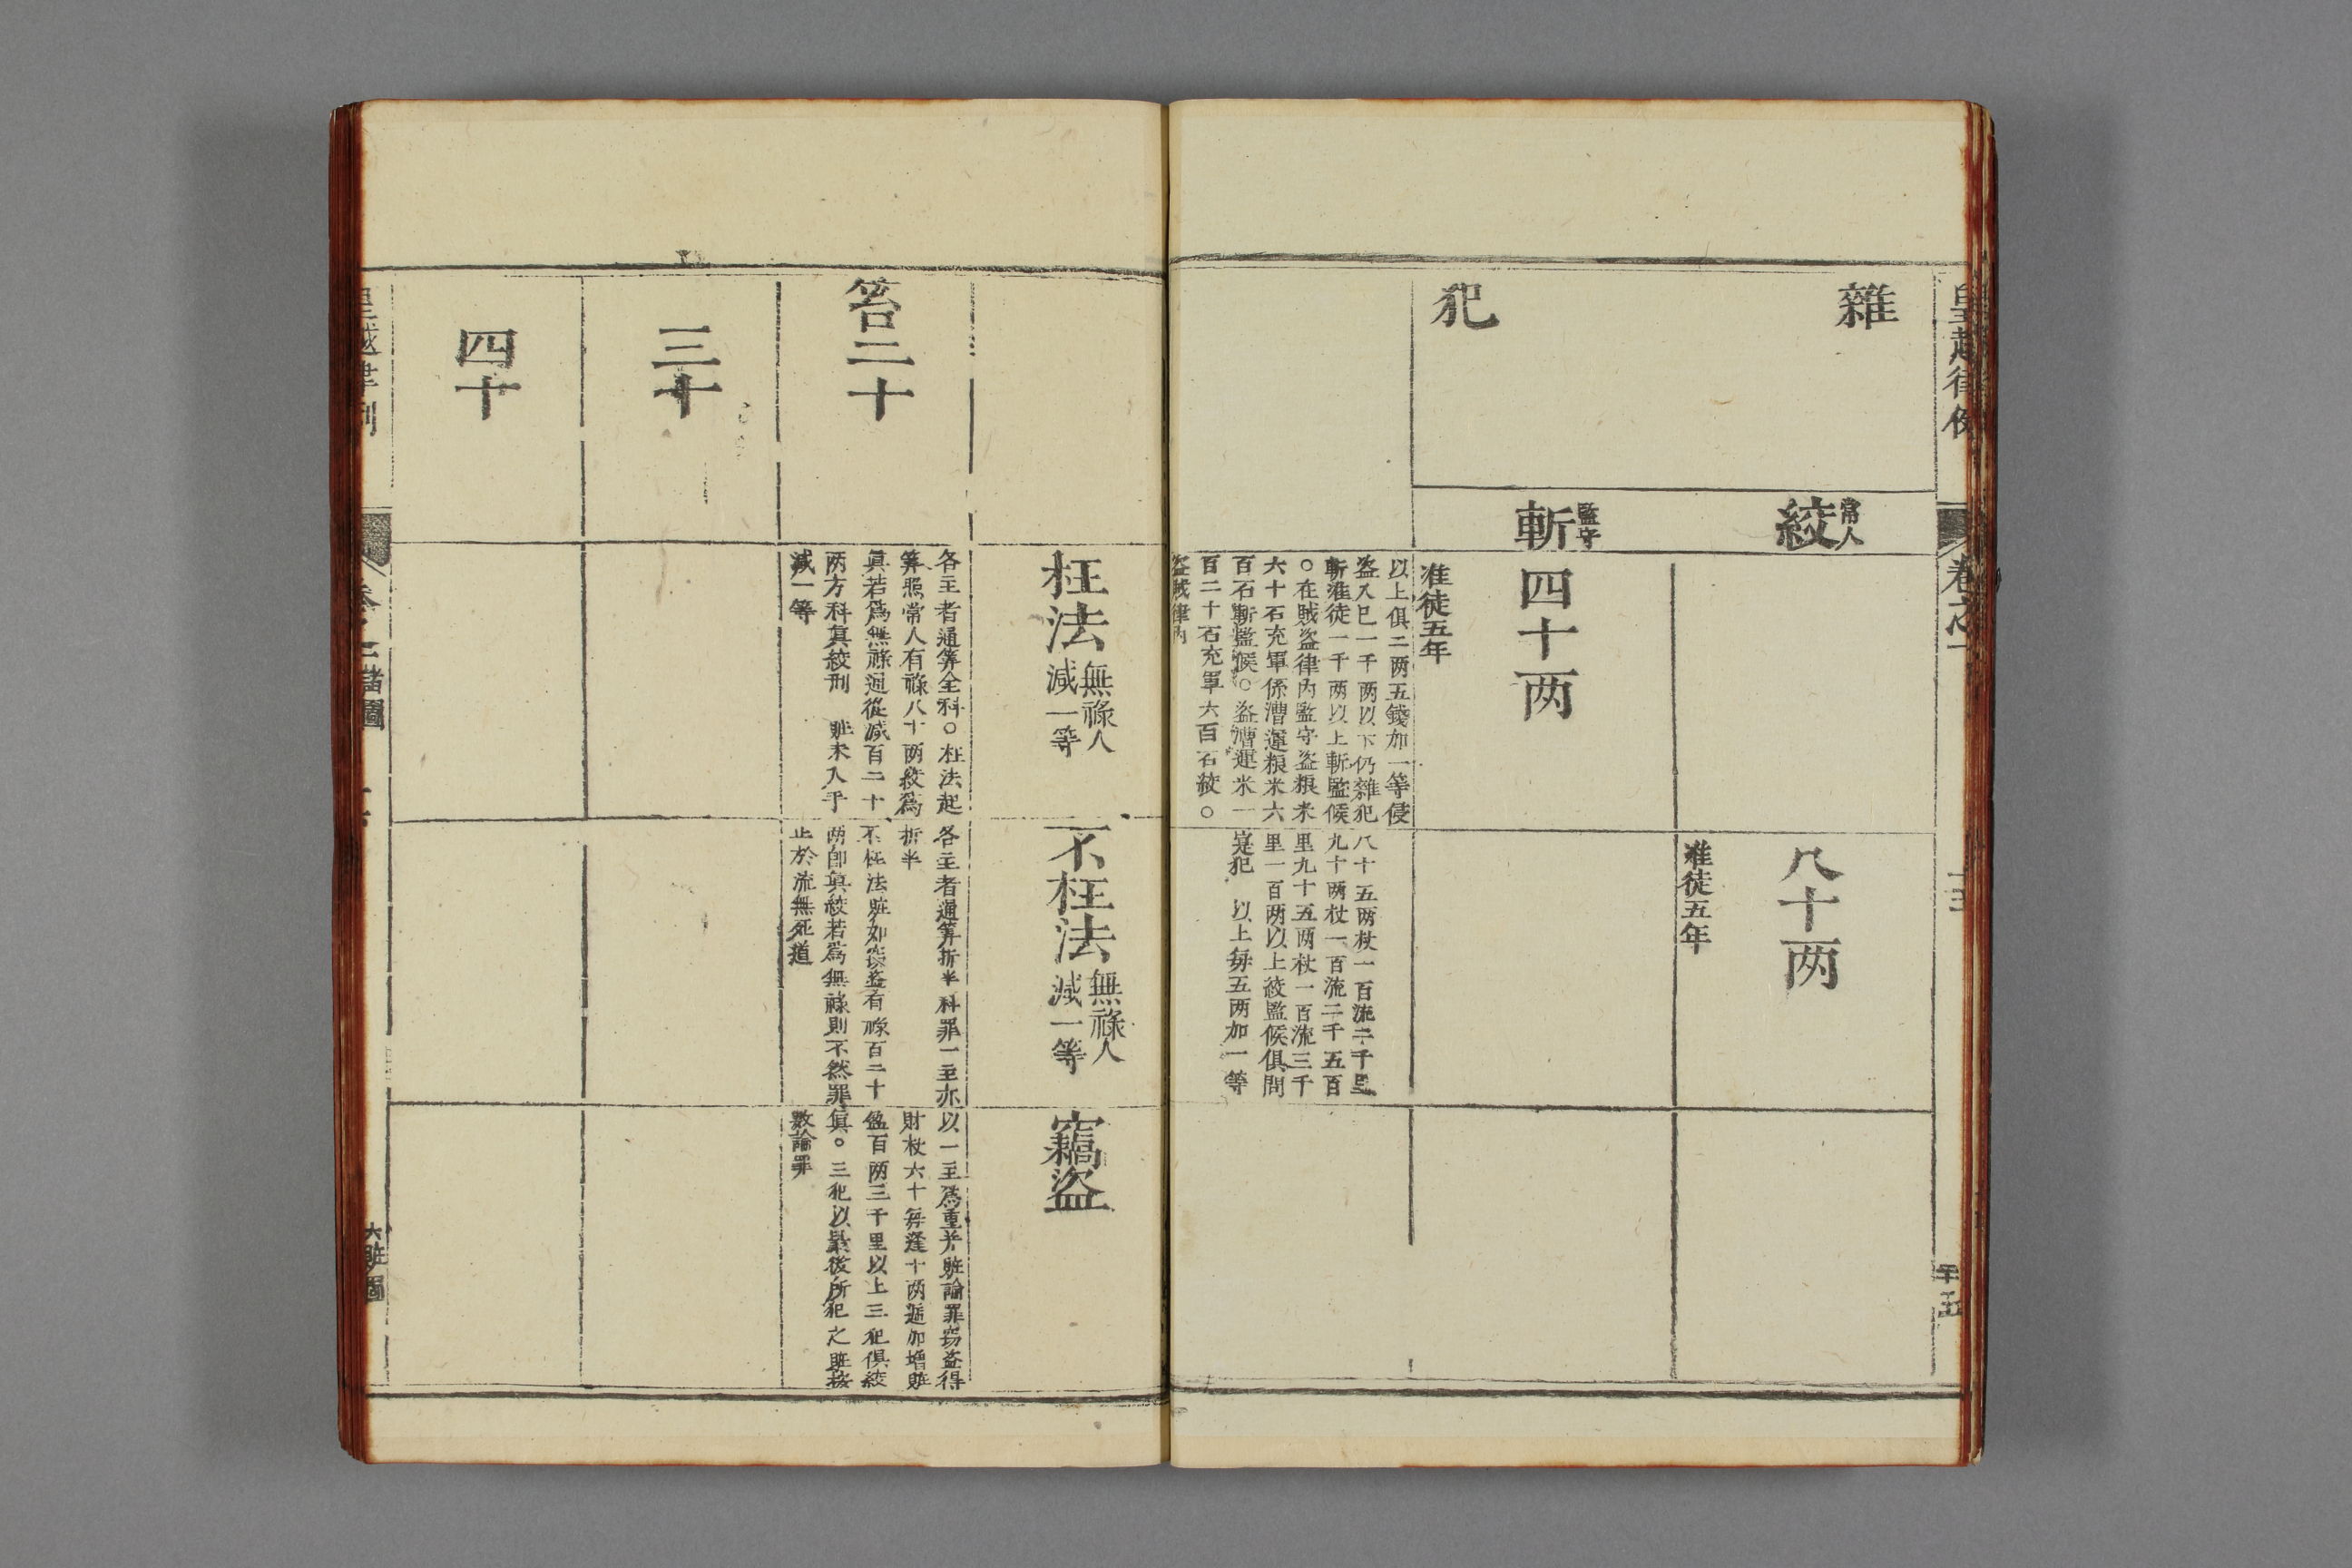 皇越律例
卷之一
雜
犯
常人
絞
監守
斬
四十两
准徒五年
以上俱二两五錢加一等侵
盗入已一千两以下仍雜犯
斬准徒一千两以上斬監候
○在賊盗律內監守盗粮米
六十石充軍係漕運粮米六
百石斬監候○盗漕運米一
百二十石充軍六百石絞○
盗賊律內
八十两
准徒五年
八十五两杖一百流二千里
九十两杖一百流二千五百
里九十五两杖一百流三千
里一百两以上絞監候俱問
寔犯　以上每五两加一等
枉法
無祿人
減一等
不枉法
無祿人
減一等
竊盗
笞二十
各主者通筭全科○枉法起
筭照常人有祿八十两絞爲
眞若爲無祿逓從減百二十
两方科眞絞刑　賍未入手
減一等
各主者通筭折半科罪一主亦
折半
不枉法賍如竊盗有祿百二十
两卽眞絞若爲無祿則不然罪
止於流無死道
以一主爲重并賍論罪竊盗得
財杖六十每逢十两逓加增賍
盈百两三千里以上三犯俱絞
眞○三犯以最後所犯之賍按
數論罪
三十
四十
皇越律例
卷之一諸圖
六賍圖